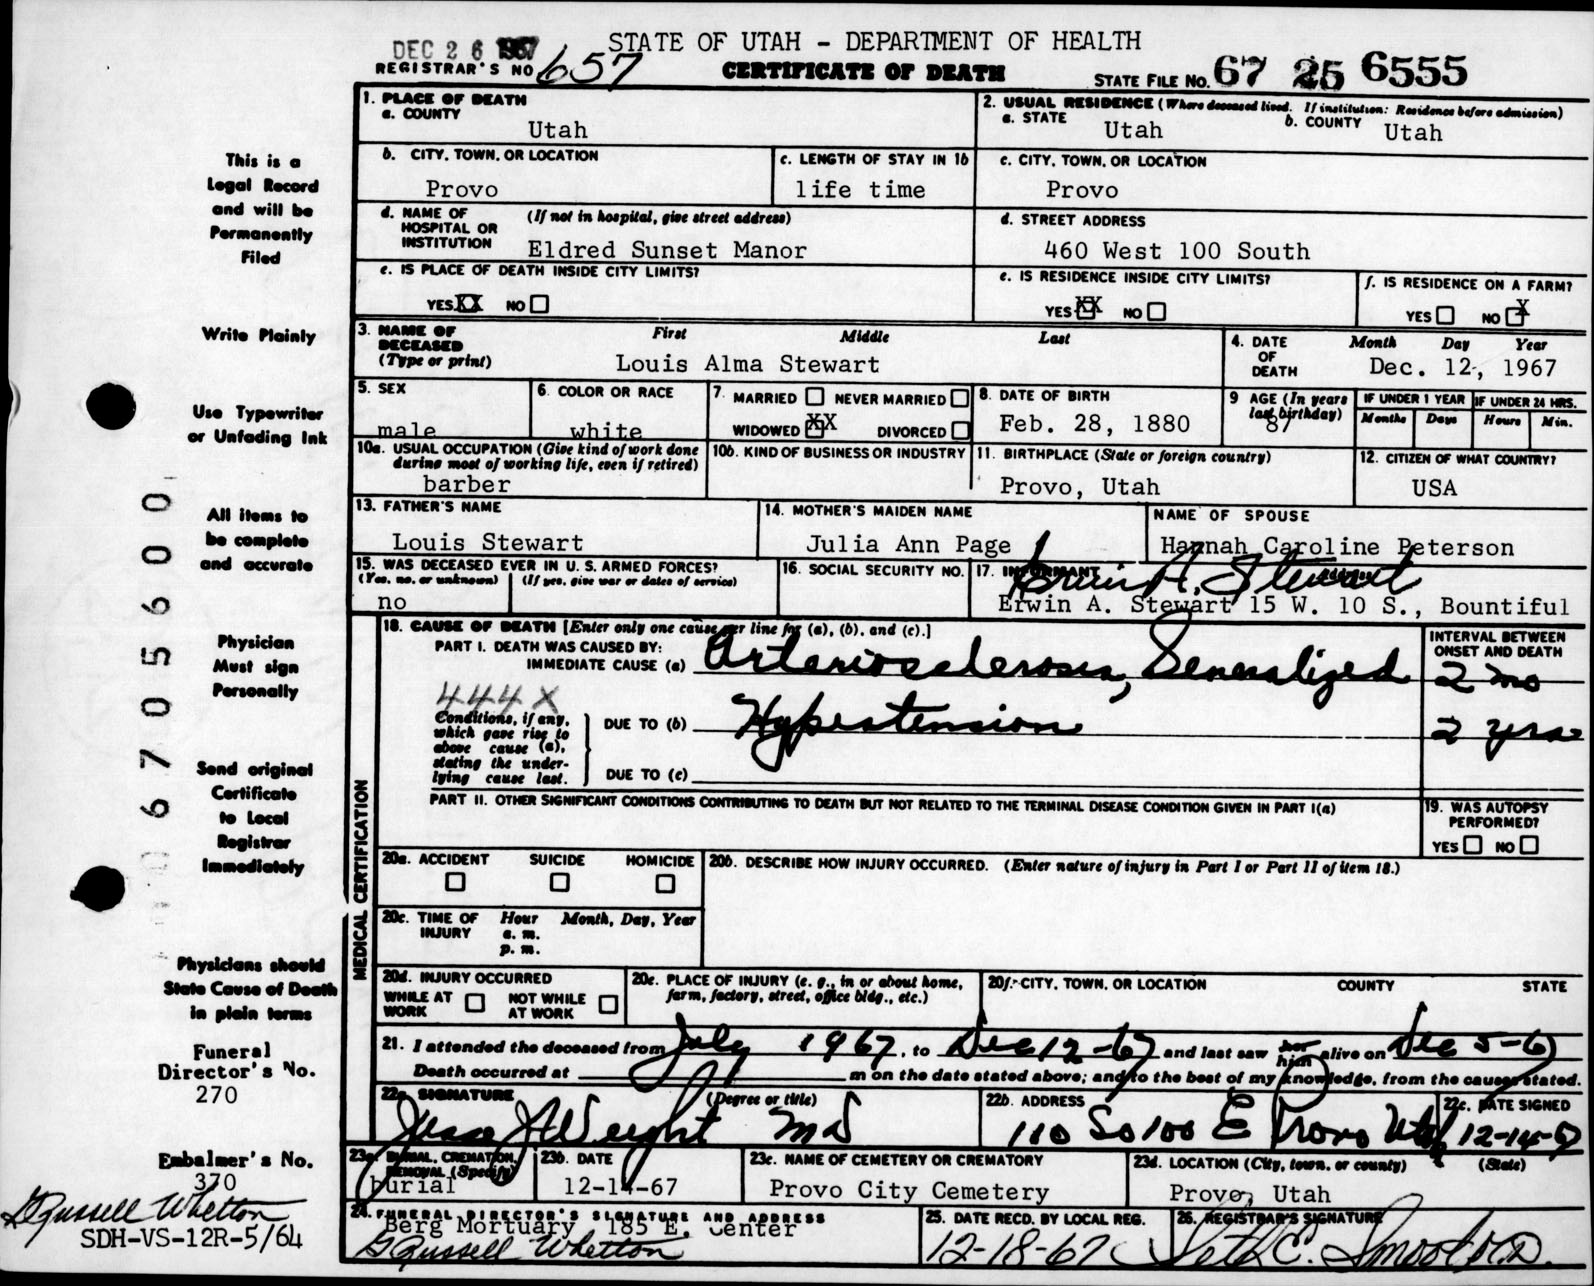 DEC 26 1967
STATE OF UTAH - DEPARTMENT OF HEALTH
REGISTRAR'S NO 657
CERTIFICATE OF DEATH
STATE FILE NO. 67 25 6555
This is a
Legal Record
and will be
Permanently
Filed
Write Plainly
Use Typewriter
or Unfading Ink
All items to
be complete
and accurate
Physician
Must sign
Personally
Send original
Certificate
to Local
Registrar
Immediately
Physicians should
State Cause of Death
in plain terms
Funeral
Director's No.
270
Embalmer's No.
370
G Russell Whetton
SDH-VS-12R-5/64
0 6 7 0 5 6 0 0
1. PLACE OF DEATH
a. COUNTY
Utah
2. USUAL RESIDENCE (Where deceased lived. If institution: Residence before admission)
a. STATE Utah
b. COUNTY Utah
b. CITY, TOWN, OR LOCATION
Provo
c. LENGTH OF STAY IN 1b
life time
c. CITY, TOWN, OR LOCATION
Provo
d. NAME OF HOSPITAL OR INSTITUTION (If not in hospital, give street address)
Eldred Sunset Manor
d. STREET ADDRESS
460 West 100 South
e. IS PLACE OF DEATH INSIDE CITY LIMITS?
YES XX NO
e. IS RESIDENCE INSIDE CITY LIMITS?
YES XX NO
f. IS RESIDENCE ON A FARM?
YES NO X
3. NAME OF DECEASED (Type or print)
First Middle Last
Louis Alma Stewart
4. DATE OF DEATH
Month Day Year
Dec. 12, 1967
5. SEX
male
6. COLOR OR RACE
white
7. MARRIED NEVER MARRIED
WIDOWED XX DIVORCED
8. DATE OF BIRTH
Feb. 28, 1880
9 AGE (In years last birthday)
87
IF UNDER 1 YEAR
Months Days
IF UNDER 24 HRS.
Hours Min.
10a. USUAL OCCUPATION (Give kind of work done during most of working life, even if retired)
barber
10b. KIND OF BUSINESS OR INDUSTRY
11. BIRTHPLACE (State or foreign country)
Provo, Utah
12. CITIZEN OF WHAT COUNTRY?
USA
13. FATHER'S NAME
Louis Stewart
14. MOTHER'S MAIDEN NAME
Julia Ann Page
NAME OF SPOUSE
Hannah Caroline Peterson
15. WAS DECEASED EVER IN U. S. ARMED FORCES?
(Yes, no, or unknown) (If yes, give war or dates of service)
no
16. SOCIAL SECURITY NO.
17. INFORMANT
Erwin A. Stewart
Erwin A. Stewart 15 W. 10 S., Bountiful
MEDICAL CERTIFICATION
18. CAUSE OF DEATH [Enter only one cause per line for (a), (b), and (c).]
INTERVAL BETWEEN ONSET AND DEATH
PART I. DEATH WAS CAUSED BY:
IMMEDIATE CAUSE (a) Arteriosclerosis, Generalized 2 mo
444X
Conditions, if any, which gave rise to above cause (a), stating the underlying cause last.
DUE TO (b) Hypertension 2 yrs
DUE TO (c)
PART II. OTHER SIGNIFICANT CONDITIONS CONTRIBUTING TO DEATH BUT NOT RELATED TO THE TERMINAL DISEASE CONDITION GIVEN IN PART I(a)
19. WAS AUTOPSY PERFORMED?
YES NO
20a. ACCIDENT SUICIDE HOMICIDE
20b. DESCRIBE HOW INJURY OCCURRED. (Enter nature of injury in Part I or Part II of item 18.)
20c. TIME OF INJURY Hour Month, Day, Year
a. m.
p. m.
20d. INJURY OCCURRED
WHILE AT WORK NOT WHILE AT WORK
20e. PLACE OF INJURY (e. g., in or about home, farm, factory, street, office bldg., etc.)
20f. CITY, TOWN, OR LOCATION COUNTY STATE
21. I attended the deceased from July 1967, to Dec 12-67 and last saw her him alive on Dec 5-67
Death occurred at m on the date stated above; and to the best of my knowledge, from the causes stated.
22a. SIGNATURE (Degree or title)
Jesse J Weight MD
22b. ADDRESS
110 So 100 E Provo Utah
22c. DATE SIGNED
12-14-67
23a. BURIAL, CREMATION, REMOVAL (Specify)
burial
23b. DATE
12-14-67
23c. NAME OF CEMETERY OR CREMATORY
Provo City Cemetery
23d. LOCATION (City, town, or county) (State)
Provo, Utah
24. FUNERAL DIRECTOR'S SIGNATURE AND ADDRESS
Berg Mortuary 185 E. Center
G Russell Whetton
25. DATE RECD. BY LOCAL REG.
12-18-67
26. REGISTRAR'S SIGNATURE
Seth E. Smoot M.D.